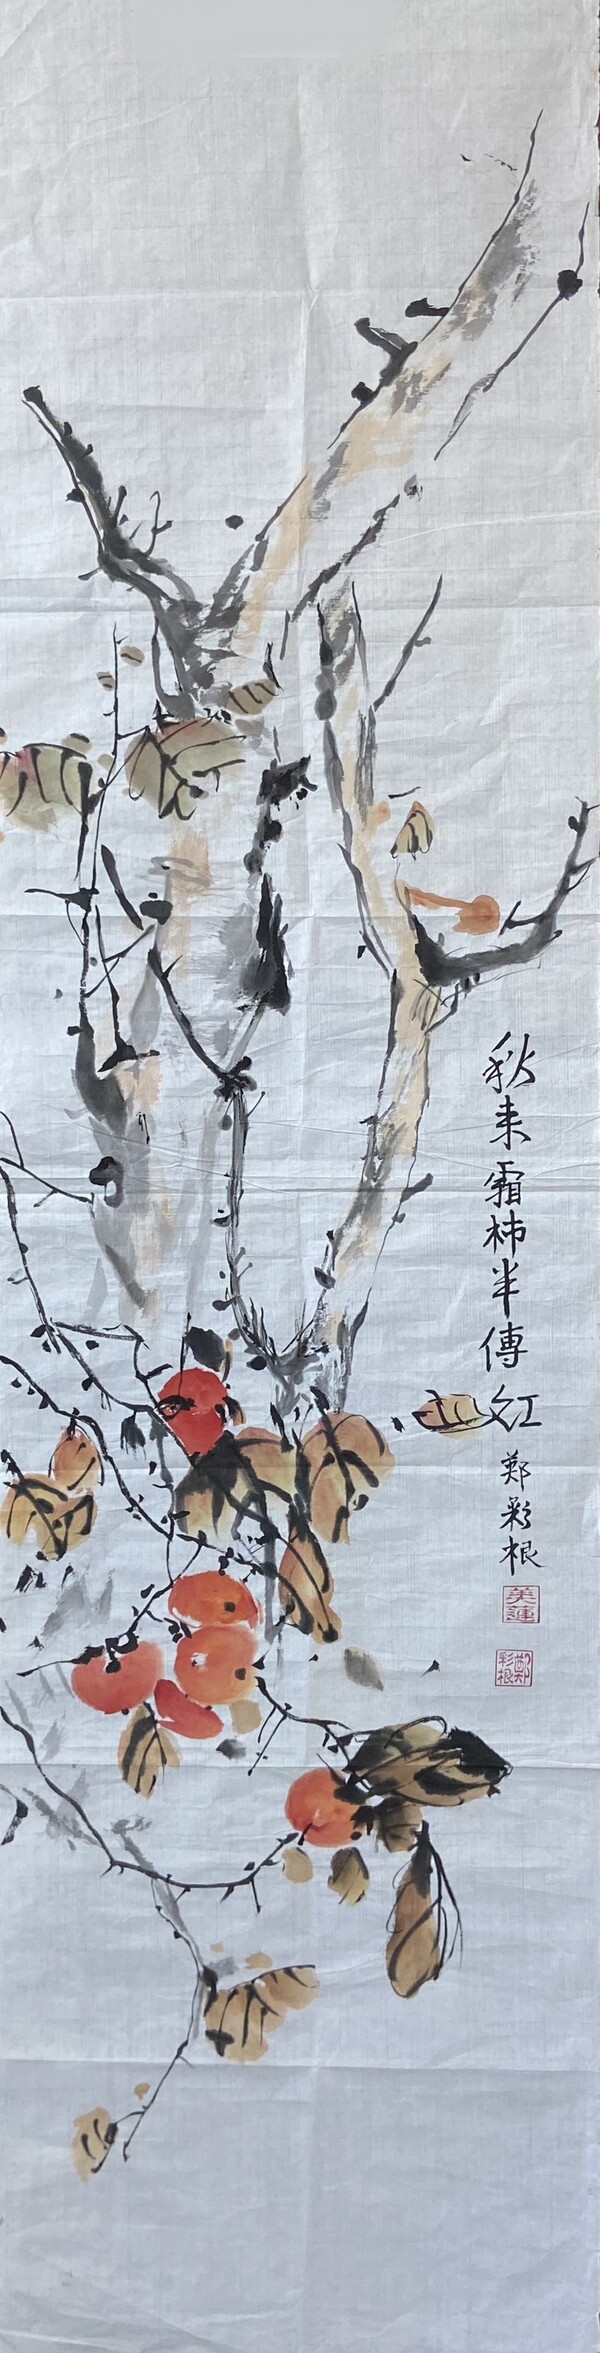 秋来霜柿半傳红
鄭彩根
美蓮
鄭彩根